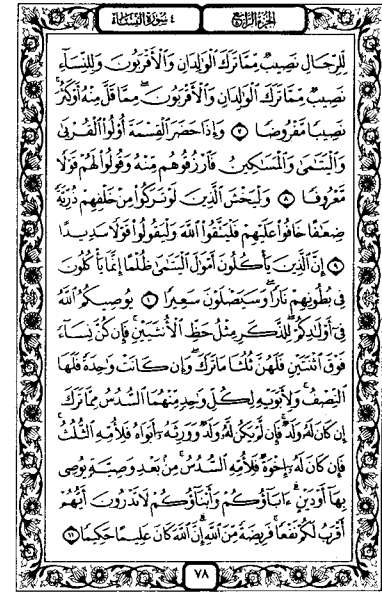 الجزء الرابع
٤ سورة النساء
لِّلرِّجَالِ نَصِيبٌ مِّمَّا تَرَكَ الْوَالِدَانِ وَالْأَقْرَبُونَ وَلِلنِّسَاءِ
نَصِيبٌ مِّمَّا تَرَكَ الْوَالِدَانِ وَالْأَقْرَبُونَ مِمَّا قَلَّ مِنْهُ أَوْ كَثُرَ
نَصِيبًا مَّفْرُوضًا ٧ وَإِذَا حَضَرَ الْقِسْمَةَ أُولُوا الْقُرْبَىٰ
وَالْيَتَامَىٰ وَالْمَسَاكِينُ فَارْزُقُوهُم مِّنْهُ وَقُولُوا لَهُمْ قَوْلًا
مَّعْرُوفًا ٨ وَلْيَخْشَ الَّذِينَ لَوْ تَرَكُوا مِنْ خَلْفِهِمْ ذُرِّيَّةً
ضِعَافًا خَافُوا عَلَيْهِمْ فَلْيَتَّقُوا اللَّهَ وَلْيَقُولُوا قَوْلًا سَدِيدًا
٩ إِنَّ الَّذِينَ يَأْكُلُونَ أَمْوَالَ الْيَتَامَىٰ ظُلْمًا إِنَّمَا يَأْكُلُونَ
فِي بُطُونِهِمْ نَارًا وَسَيَصْلَوْنَ سَعِيرًا ١٠ يُوصِيكُمُ اللَّهُ
فِي أَوْلَادِكُمْ لِلذَّكَرِ مِثْلُ حَظِّ الْأُنثَيَيْنِ فَإِن كُنَّ نِسَاءً
فَوْقَ اثْنَتَيْنِ فَلَهُنَّ ثُلُثَا مَا تَرَكَ وَإِن كَانَتْ وَاحِدَةً فَلَهَا
النِّصْفُ وَلِأَبَوَيْهِ لِكُلِّ وَاحِدٍ مِّنْهُمَا السُّدُسُ مِمَّا تَرَكَ
إِن كَانَ لَهُ وَلَدٌ فَإِن لَّمْ يَكُن لَّهُ وَلَدٌ وَوَرِثَهُ أَبَوَاهُ فَلِأُمِّهِ الثُّلُثُ
فَإِن كَانَ لَهُ إِخْوَةٌ فَلِأُمِّهِ السُّدُسُ مِن بَعْدِ وَصِيَّةٍ يُوصِي
بِهَا أَوْ دَيْنٍ ءَابَاؤُكُمْ وَأَبْنَاؤُكُمْ لَا تَدْرُونَ أَيُّهُمْ
أَقْرَبُ لَكُمْ نَفْعًا فَرِيضَةً مِّنَ اللَّهِ إِنَّ اللَّهَ كَانَ عَلِيمًا حَكِيمًا ١١
٧٨